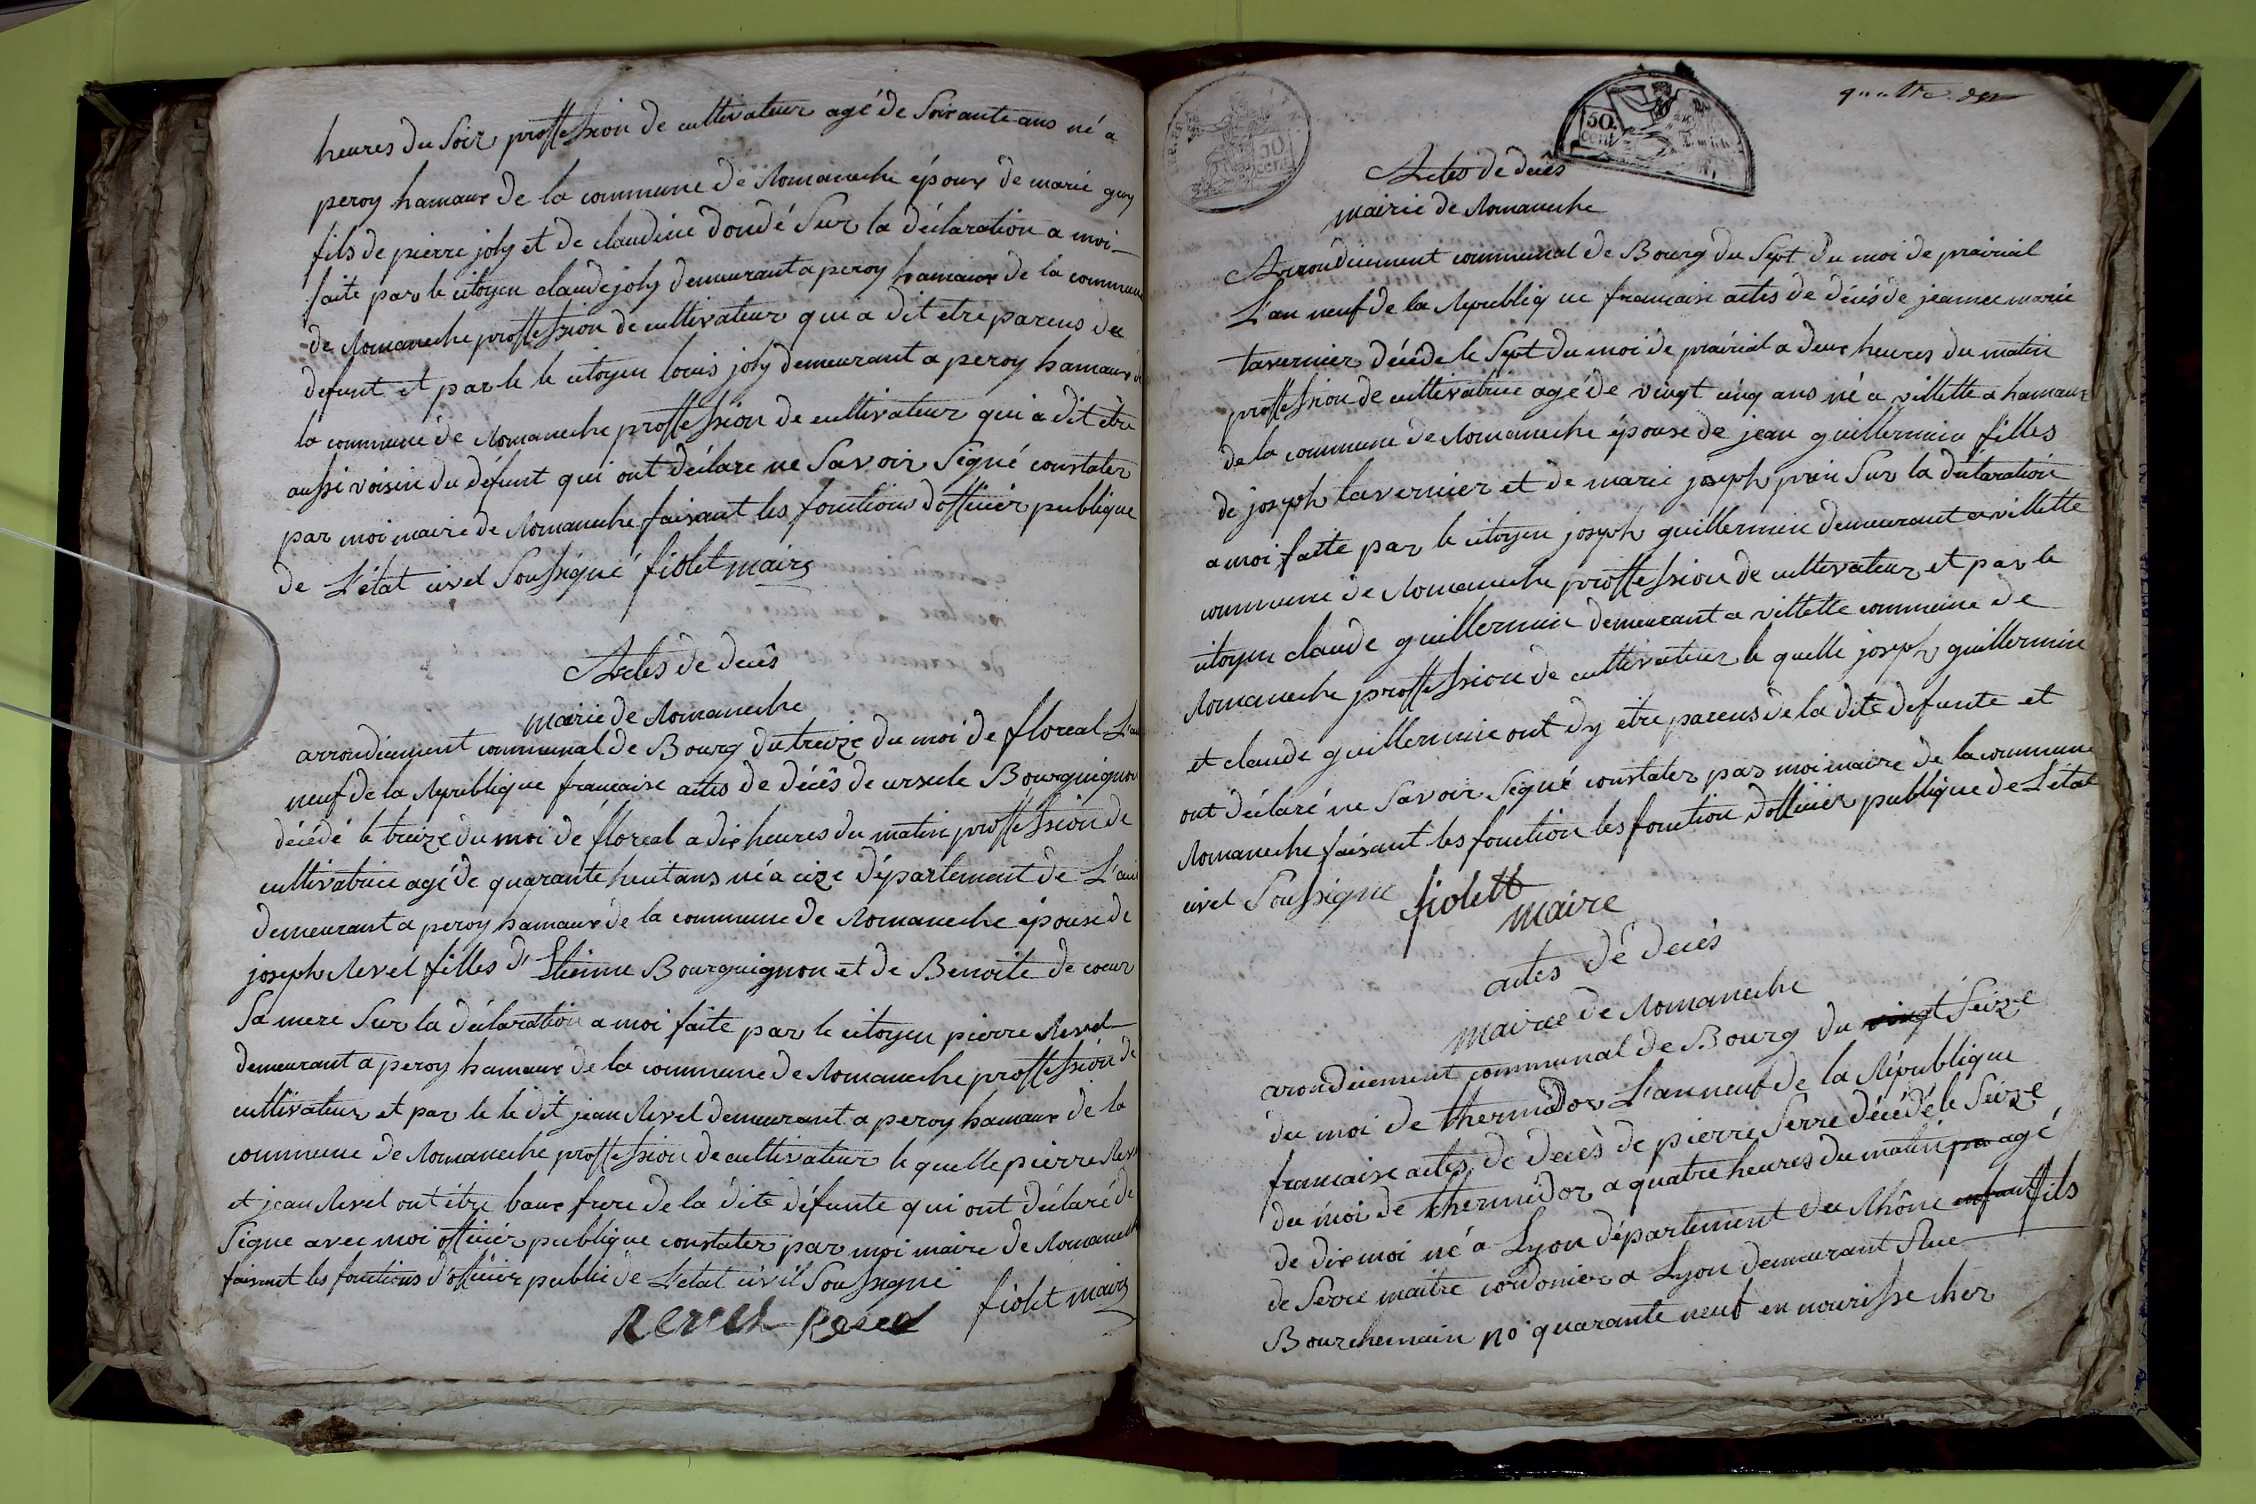 heures du Soir proffession de cultivateur agé de Soixante ans né a
peroy hamaux de la commune de Romaneche époux de marie guy
fils de pierre joly et de claudine dondé Sur la déclaration a moi
faite par le citoyen claude joly demeurant a peroy hamaux de la commune
de Romaneche proffession de cultivateur qui a dit etre parens du
defunt et par le le citoyen louis joly demeurant a peroy hamaux de
la commune de Romaneche proffession de cultivateur qui a dit etre
aussi voisin du défunt qui ont déclare ne Savoir Signé constater
par moi maire de Romaneche faisant les fonctions dofficier publique
de L'état civel Soussigné fiolet maire
Actes de decês
mairie de Romaneche
arrondicement communal de Bourg du treize du moi de floreal L'an
neuf de la Republique francaise actes de décês de ursule Bourguignon
décédé le treize du moi de floreal a dix heures du matin proffession de
cultivatrice agé de quarante huit ans né a cize département de L'ain
demeurant a peroy hamaux de la commune de Romaneche épouse de
joseph Revel filles d'Etienne Bourguignon et de Benoite de coeur
Sa mere Sur la déclaration a moi faite par le citoyen pierre Revel
demeurant a peroy hamaux de la commune de Romaneche proffession de
cultivateur et par le le dit jean Revel demeurant a peroy hamaux de la
commune de Romaneche proffession de cultivateur le quelle pierre Revel
et jean Revel ont étre baux frere de la dite défunte qui ont déclaré de
Signe avec moi officier publique constater par moi maire de Romaneche
faisant les fonctions d'officier public de L'etat civil Soussigné
Revel Revel fiolet maire
quatre
50 cent
50. cent
Actes de decês
mairie de Romaneche
Arrondicement communal de Bourg du Sept du moi de prairial
L'an neuf de la Republique francaise actes de décés de jeanne marie
tavernier décéde le Sept du moi de prairial a deux heures du matin
proffession de cultivatrice agé de vingt cinq ans né a villette a hamaux
de la commune de Romaneche épouse de jean guillermin filles
de joseph tavernier et de marie joseph prin Sur la déclaration
a moi faite par le citoyen joseph guillermin demeurant a villette
commune de Romaneche proffession de cultivateur et par le
citoyen claude guillermin demeurant a villette commune de
Romaneche proffession de cultivateur le quelle joseph guillermin
et claude guillermin ont dy etre parens de la dite defunte et
ont déclaré ne Savoir Signé constater par moi maire de la commune
Romaneche faisant les fonction les fonction dofficier publique de L'état
civel Soussigne fiolett
maire
actes de decès
Mairie de Romaneche
arondicement communal de Bourg du vingt Seize
du moi de thermidor L'an neuf de la République
francaise actes de decès de pierre Serre décédé le Seize
du moi de thermidor a quatre heures du matin pro agé
de dix moi né a Lyon département du Rhône enfant fils
de Serre maitre cordonier a Lyon demeurant Rue
Bourchemain no quarante neuf en nourisse cher